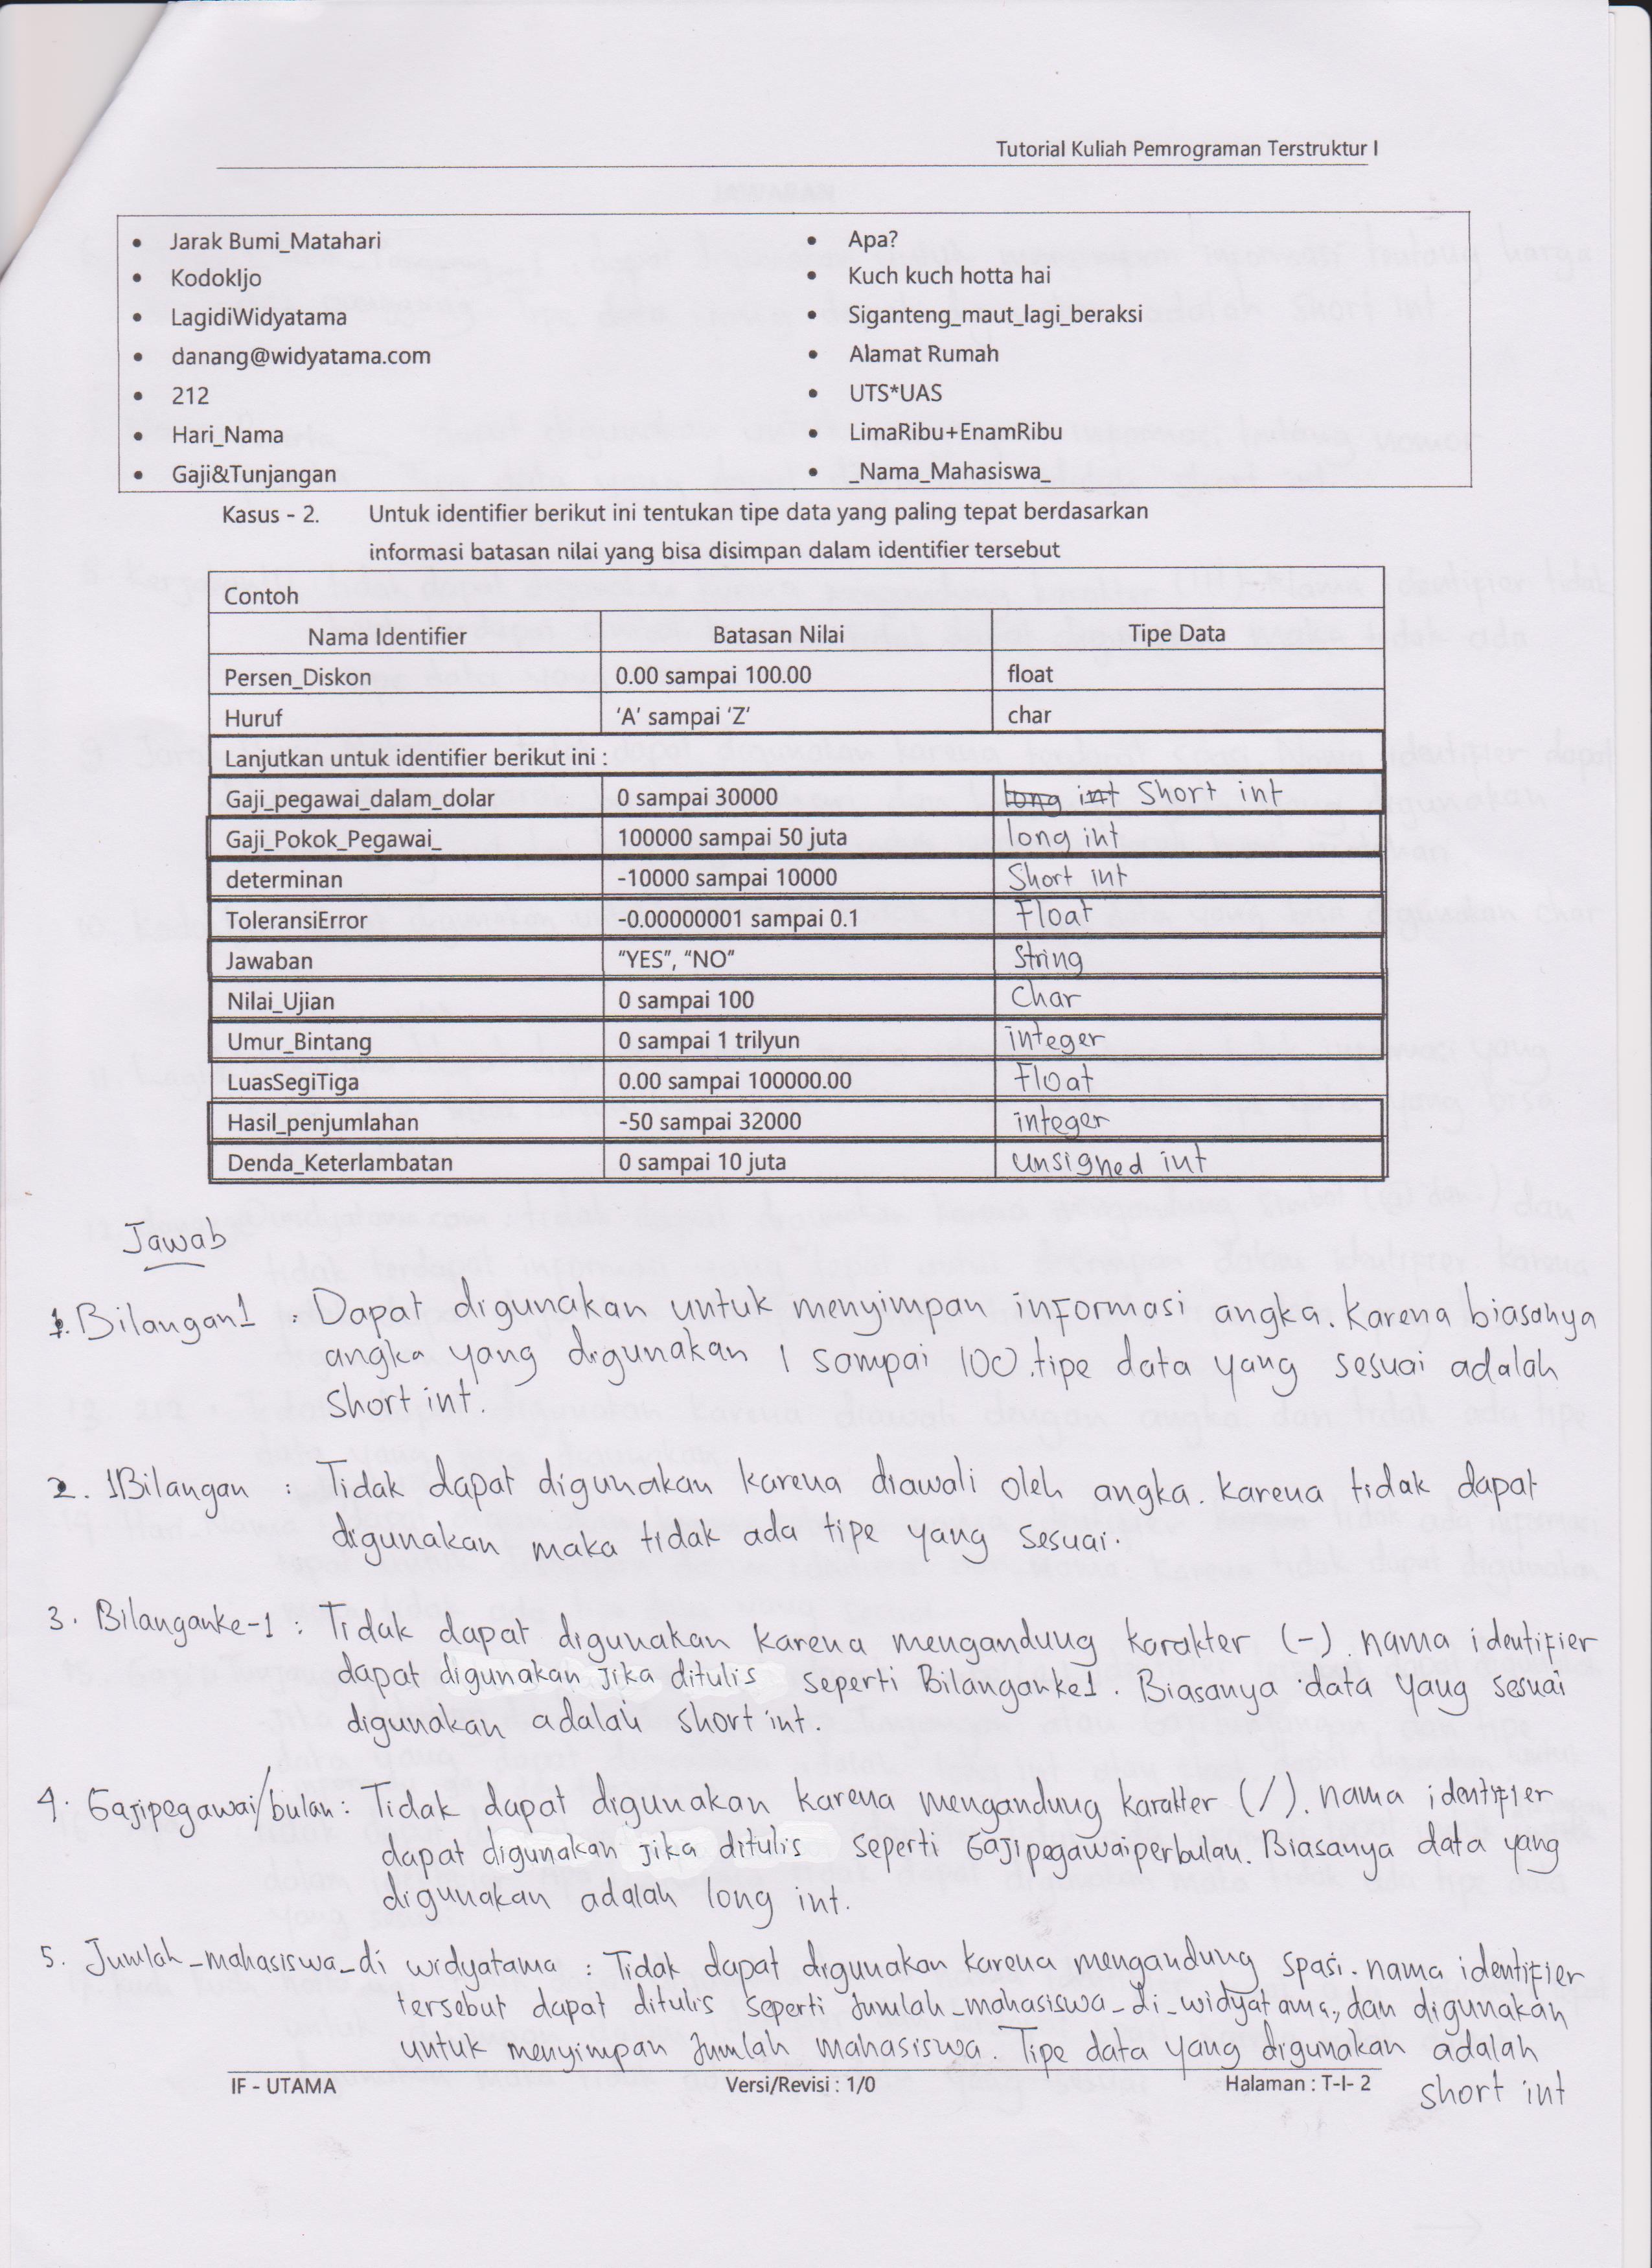 Tutorial Kuliah Pemrograman Terstruktur I
• Jarak Bumi_Matahari
• KodokIjo
• LagidiWidyatama
• danang@widyatama.com
• 212
• Hari_Nama
• Gaji&Tunjangan
• Apa?
• Kuch kuch hotta hai
• Siganteng_maut_lagi_beraksi
• Alamat Rumah
• UTS*UAS
• LimaRibu+EnamRibu
• _Nama_Mahasiswa_
Kasus - 2. Untuk identifier berikut ini tentukan tipe data yang paling tepat berdasarkan
informasi batasan nilai yang bisa disimpan dalam identifier tersebut
Contoh
Nama Identifier Batasan Nilai Tipe Data
Persen_Diskon 0.00 sampai 100.00 float
Huruf 'A' sampai 'Z' char
Lanjutkan untuk identifier berikut ini :
Gaji_pegawai_dalam_dolar 0 sampai 30000 long int Short int
Gaji_Pokok_Pegawai_ 100000 sampai 50 juta long int
determinan -10000 sampai 10000 Short int
ToleransiError -0.00000001 sampai 0.1 Float
Jawaban "YES", "NO" String
Nilai_Ujian 0 sampai 100 Char
Umur_Bintang 0 sampai 1 trilyun integer
LuasSegiTiga 0.00 sampai 100000.00 Float
Hasil_penjumlahan -50 sampai 32000 integer
Denda_Keterlambatan 0 sampai 10 juta unsigned int
Jawab
1. Bilangan1 : Dapat digunakan untuk menyimpan informasi angka. Karena biasanya
angka yang digunakan 1 sampai 100. tipe data yang sesuai adalah
Short int.
2. 1Bilangan : Tidak dapat digunakan karena diawali oleh angka. karena tidak dapat
digunakan maka tidak ada tipe yang sesuai.
3. Bilanganke-1 : Tidak dapat digunakan karena mengandung karakter (-). nama identifier
dapat digunakan jika ditulis seperti Bilanganke1. Biasanya data yang sesuai
digunakan adalah short int.
4. Gajipegawai/bulan : Tidak dapat digunakan karena mengandung karakter (/). nama identifier
dapat digunakan jika ditulis seperti Gajipegawaiperbulan. Biasanya data yang
digunakan adalah long int.
5. Jumlah_mahasiswa_di widyatama : Tidak dapat digunakan karena mengandung spasi. nama identifier
tersebut dapat ditulis seperti Jumlah_mahasiswa_di_widyatama, dan digunakan
untuk menyimpan Jumlah mahasiswa. Tipe data yang digunakan adalah
short int
IF - UTAMA Versi/Revisi : 1/0 Halaman : T-I- 2